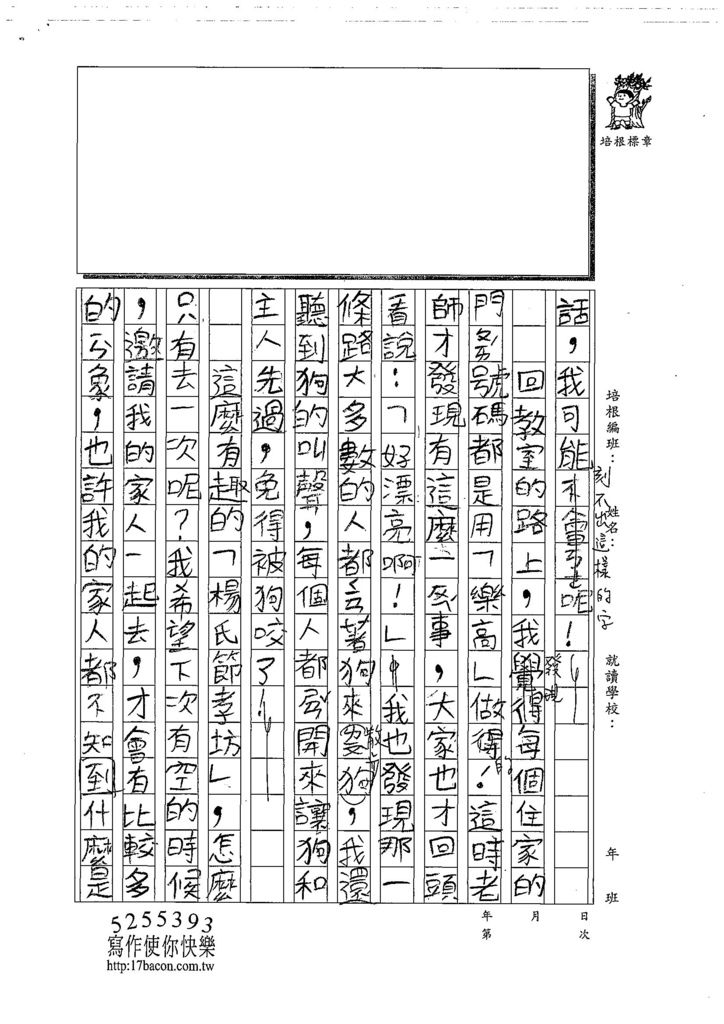 培根標章
培根編班：
姓名：
就讀學校：
年 班
刻不出這樣的字
話，我可能不會呢！
回教室的路上，我覺得每個住家的
發現
門號碼都是用「樂高」做得！這時老
的
師才發現有這麼一回事，大家也才回頭
看說：「好漂亮啊！」我也發現那一
條路大多數的人都會著狗來耍狗，我還
散步
聽到狗的叫聲，每個人都叧開來讓狗和
主人先過，免得被狗咬了！
這麼有趣的「楊氏節孝坊」，怎麼
只有去一次呢？我希望下次有空的時候
，邀請我的家人一起去，才會有比較多
的象，也許我的家人都不知到什麼是
年 月 日
第 次
5255393
寫作使你快樂
http:17bacon.com.tw